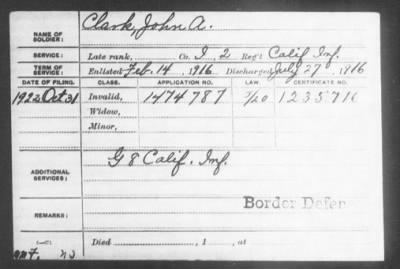 NAME OF SOLDIER: Clark, John A.
SERVICE: Late rank, Co. I, 2 Reg't Calif Inf.
TERM OF SERVICE: Enlisted Feb. 14, 1916 Discharged July 27, 1916
DATE OF FILING. CLASS. APPLICATION NO. LAW. CERTIFICATE NO.
1922 Oct 31 Invalid, 1474787 1235716
Widow,
Minor,
ADDITIONAL SERVICES: G 8 Calif. Inf.
Border Defen
REMARKS:
Died , 1 , at